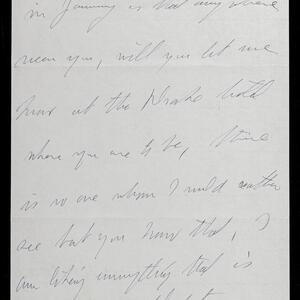 in January is that anywhere
near you, will you let me
know at the Drake hotel
where you are to be, there
is no one whom I would rather
see but you know that, I
am liking everything that is